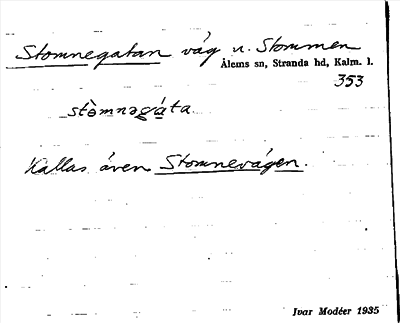 Stomnegatan väg n. Stommen
Ålems sn, Stranda hd, Kalm. l.
353
stòmnəgáta
Kallas även Stomnevägen.
Ivar Modéer 1935